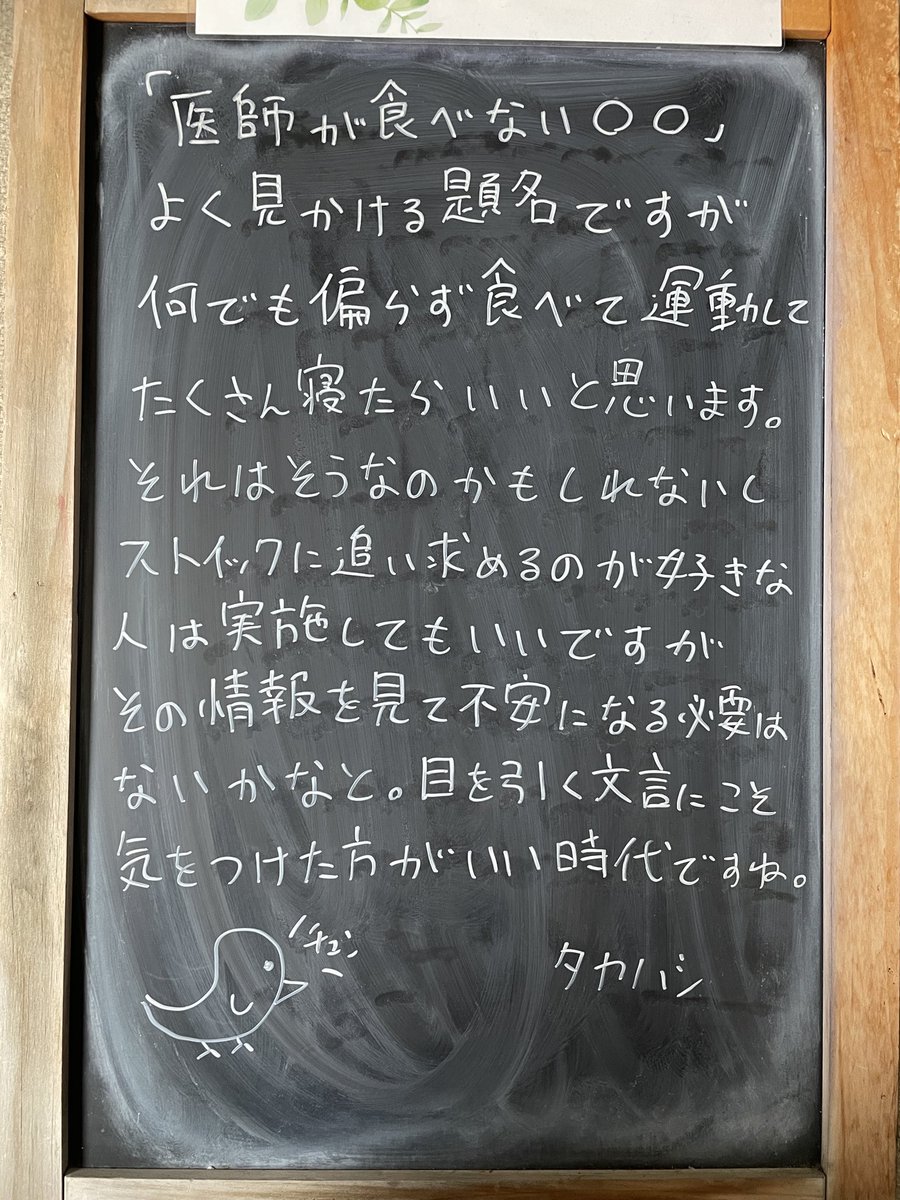 「医師が食べない〇〇」
よく見かける題名ですが
何でも偏らず食べて運動して
たくさん寝たらいいと思います。
それはそうなのかもしれないし
ストイックに追い求めるのが好きな
人は実施してもいいですが
その情報を見て不安になる必要は
ないかなと。目を引く文言にこそ
気をつけた方がいい時代ですね。
チュン
タカハシ